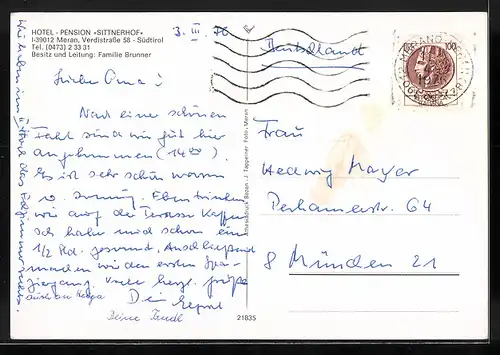 HOTEL - PENSION »SITTNERHOF«
I-39012 Meran, Verdistraße 58 - Südtirol
Tel. (0473) 2 33 31
Besitz und Leitung: Familie Brunner
3. III. 76
Deutschland
100
Liebe Oma!
Nach einer schönen
Fahrt sind wir gut hier
angekommen (14 00)
Es ist sehr schön warm
u. sonnig. Eben trinken
wir auf der Terasse Kaffee
ich habe mich schon eine
1/2 Std. gesonnt. Anschließend
machen wir den ersten Spa-
ziergang. Viele herzl. Grüße
auch an Helga
Dein
Deine Traudl
Wir haben im II. Stock
Frau
Hedwig Mayer
64
8 München 21
Athesiadruck Bozen J. Tappeiner Foto, Meran
21835